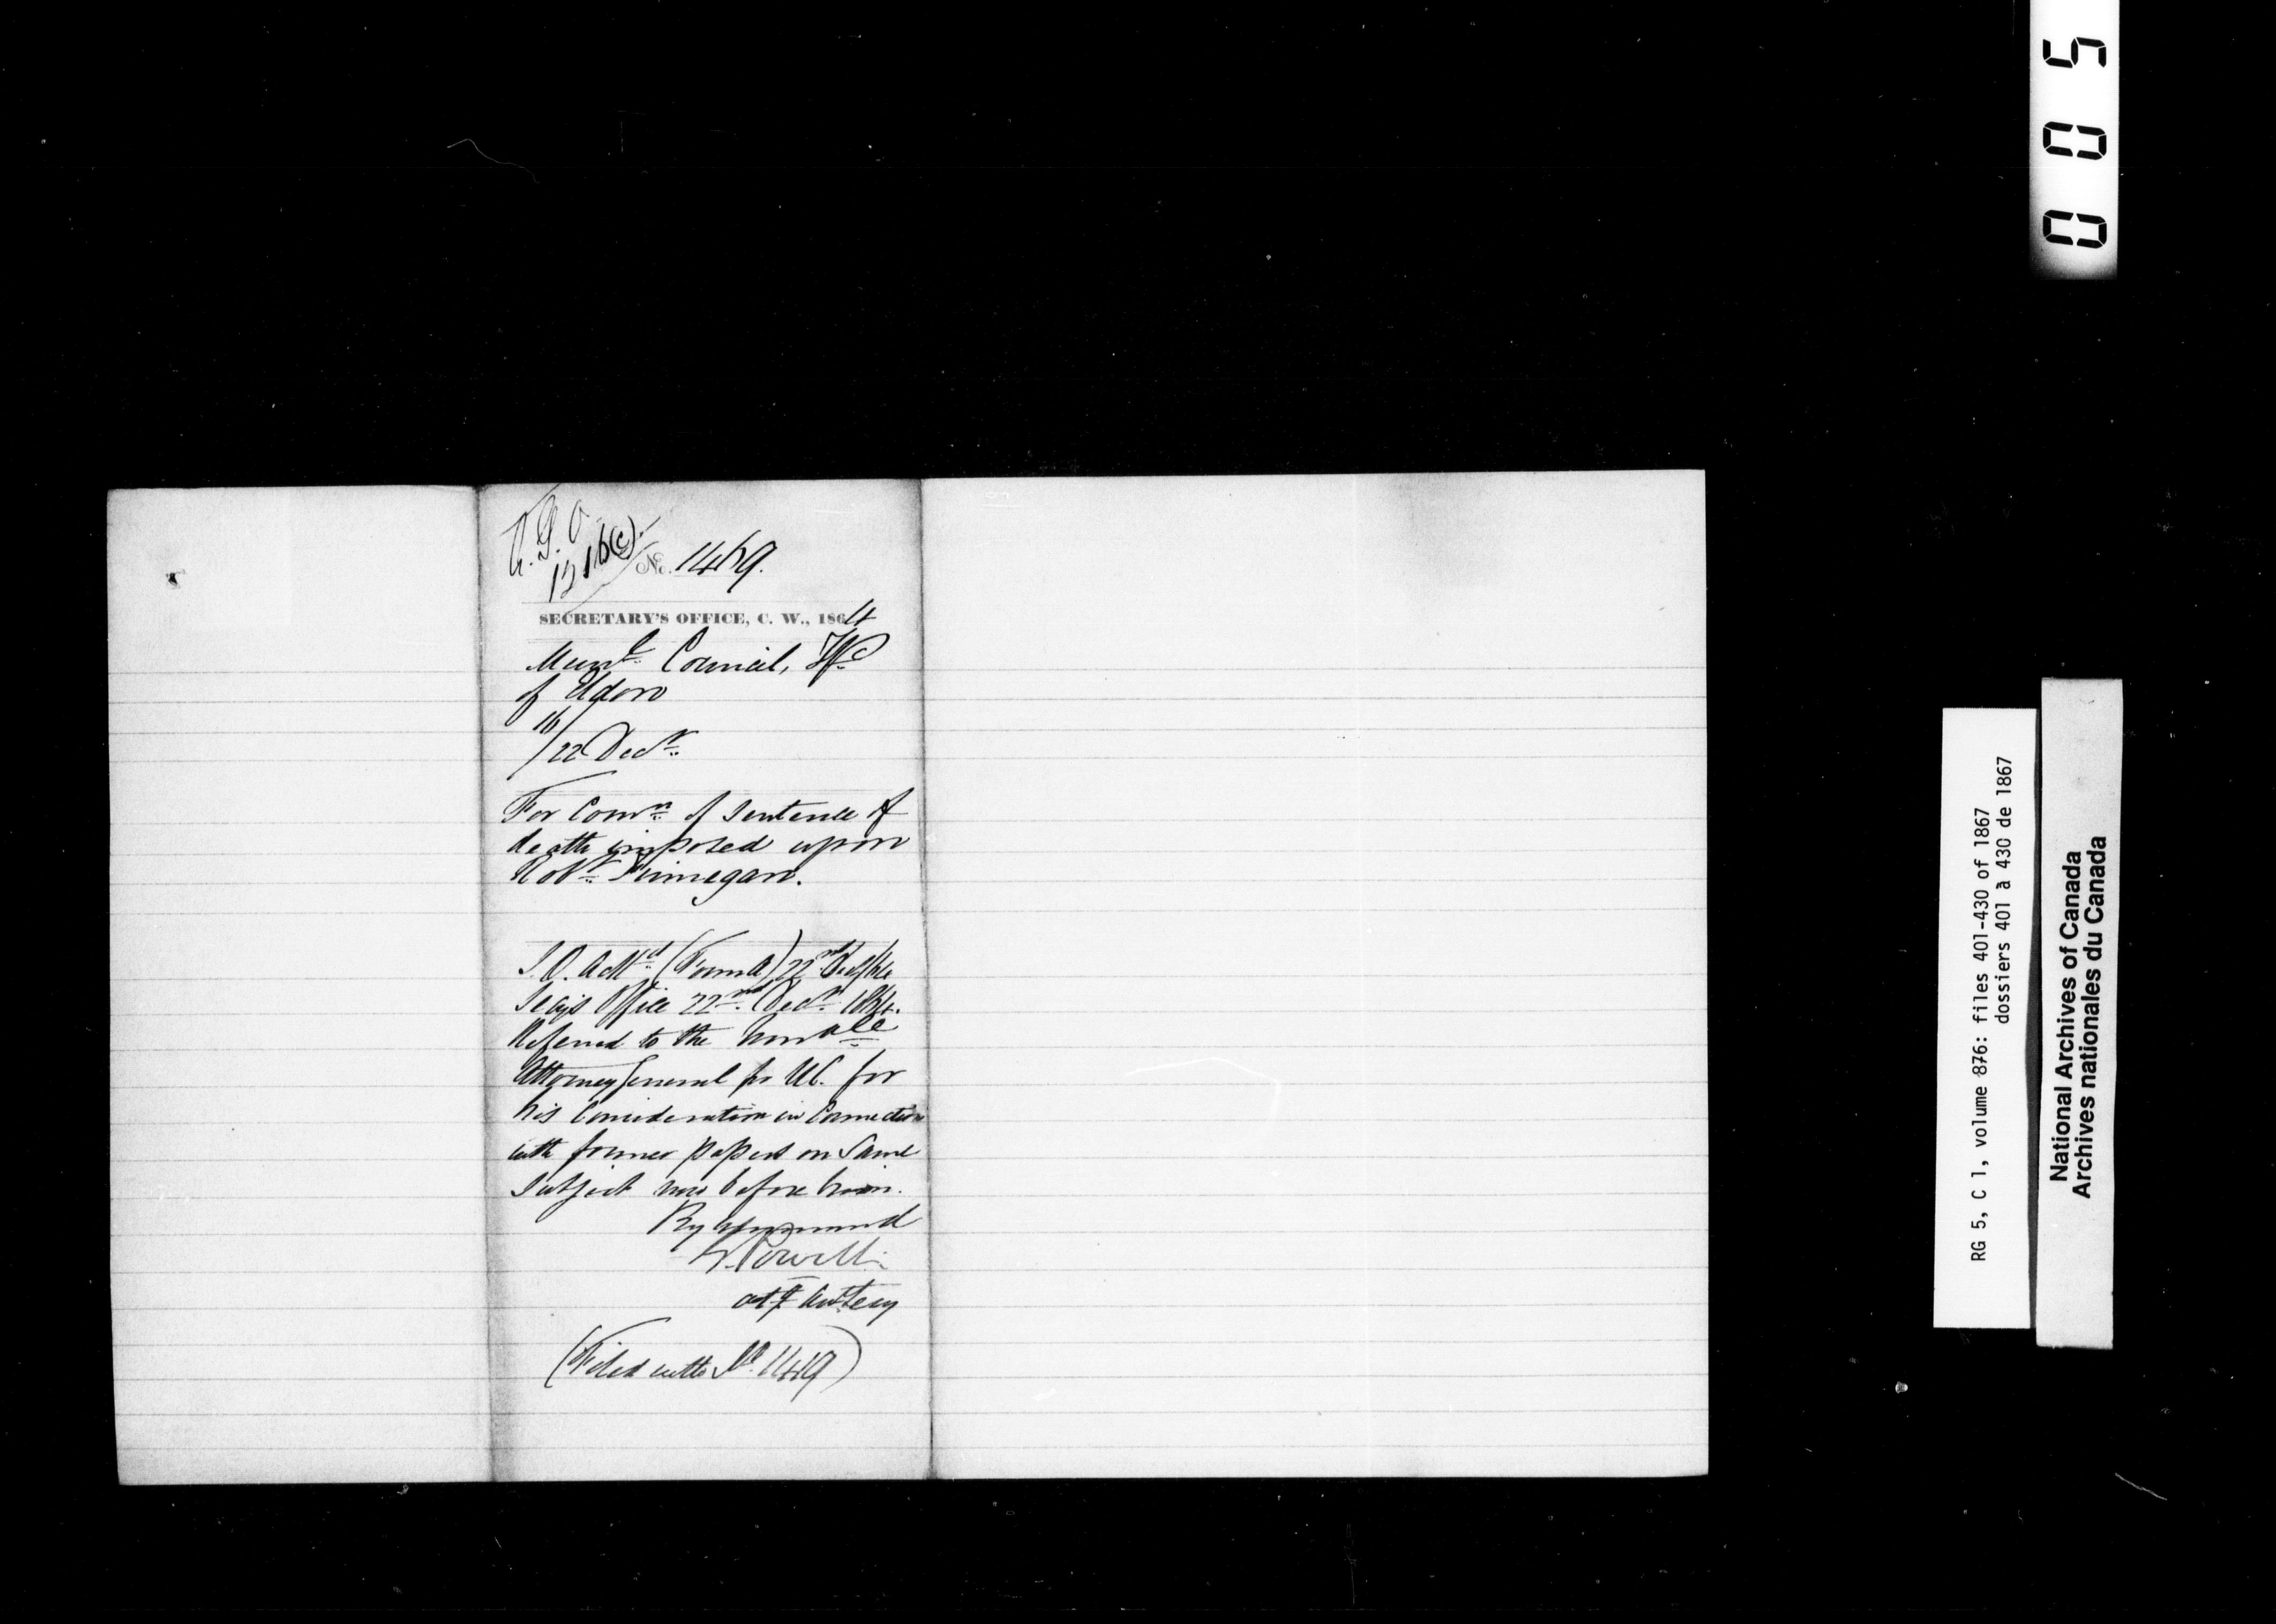 A.G.O
1316(c)
No. 1469.
SECRETARY'S OFFICE, C. W., 1864
Munl. Council, Tp
of
16/22 Decr.
For Comn. of Sentence of
death imposed upon
Robt. Finnegan.
(Form A) 22nd Dec/64
Secy's Office 22nd Decr. 1864.
Referred to the Honble
Attorney General for U.C. for
his Consideration in Connection
with former papers on Same
Subject now before him.
By Command
Powell
(Filed with No. 1449)
005
RG 5, C 1, volume 876: files 401-430 of 1867
dossiers 401 à 430 de 1867
National Archives of Canada
Archives nationales du Canada